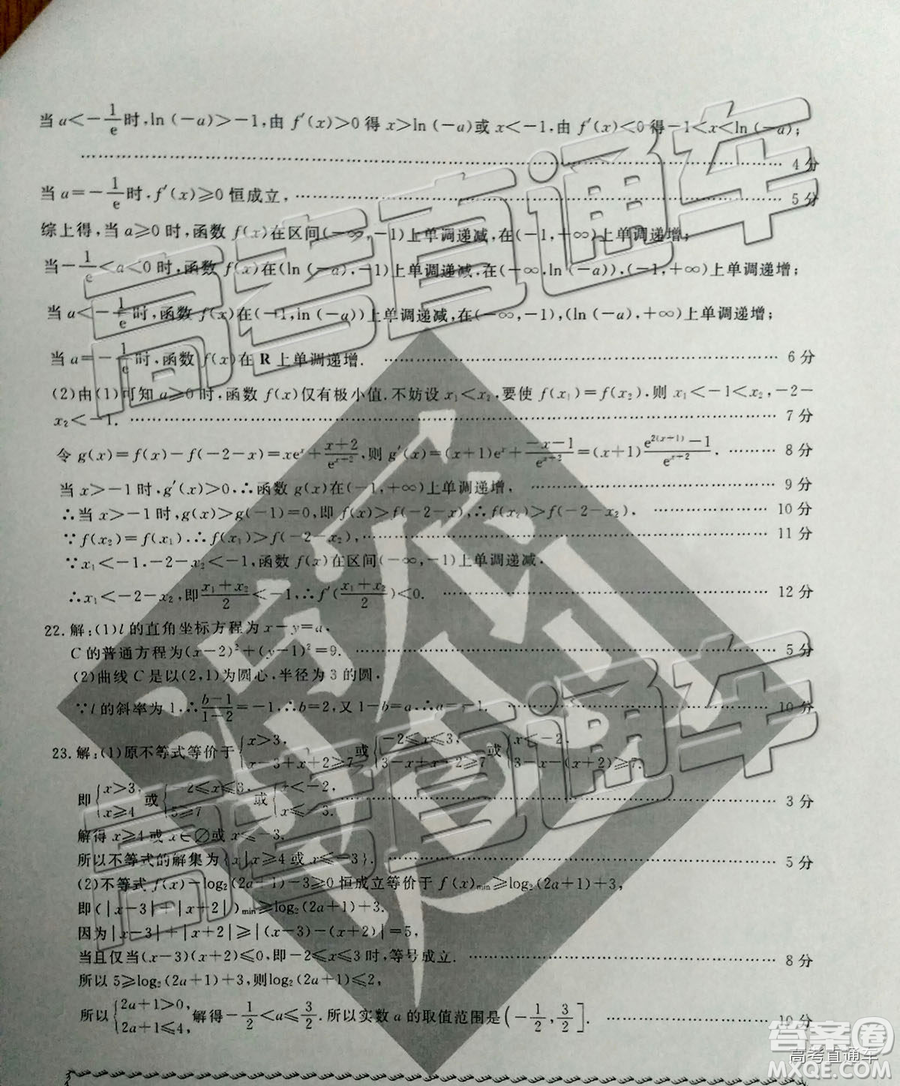 当a<-1/e时,ln(-a)>-1,由f′(x)>0得x>ln(-a)或x<-1,由f′(x)<0得-1<x<ln(-a);
…… 4分
当a=-1/e时,f′(x)≥0恒成立,…… 5分
综上得,当a≥0时,函数f(x)在区间(-∞,-1)上单调递减,在(-1,+∞)上单调递增;
当-1/e<a<0时,函数f(x)在(ln(-a),-1)上单调递减,在(-∞,ln(-a)),(-1,+∞)上单调递增;
当a<-1/e时,函数f(x)在(-1,ln(-a))上单调递减,在(-∞,-1),(ln(-a),+∞)上单调递增;
当a=-1/e时,函数f(x)在R上单调递增.…… 6分
(2)由(1)可知a≥0时,函数f(x)仅有极小值.不妨设x₁<x₂,要使f(x₁)=f(x₂),则x₁<-1<x₂,-2-
x₂<-1.…… 7分
令g(x)=f(x)-f(-2-x)=xeˣ+(x+2)/e^(x+2),则g′(x)=(x+1)eˣ+(-x-1)/e^(x+2)=(x+1)(e^(2(x+1))-1)/e^(x+2).…… 8分
当x>-1时,g′(x)>0,∴函数g(x)在(-1,+∞)上单调递增,…… 9分
∴当x>-1时,g(x)>g(-1)=0,即f(x)>f(-2-x),∴f(x₂)>f(-2-x₂),…… 10分
∵f(x₂)=f(x₁),∴f(x₁)>f(-2-x₂),…… 11分
∵x₁<-1,-2-x₂<-1,函数f(x)在区间(-∞,-1)上单调递减,
∴x₁<-2-x₂,即(x₁+x₂)/2<-1,∴f′((x₁+x₂)/2)<0.…… 12分
22.解:(1)l的直角坐标方程为x-y=a,
C的普通方程为(x-2)²+(y-1)²=9.…… 5分
(2)曲线C是以(2,1)为圆心,半径为3的圆,
∵l的斜率为1,∴(b-1)/(1-2)=-1,∴b=2,又1-b=a,∴a=-1.…… 10分
23.解:(1)原不等式等价于{x>3, x-3+x+2≥7,或{-2≤x≤3, 3-x+x+2≥7,或{x<-2, 3-x-(x+2)≥7.
即{x>3, x≥4或{-2≤x≤3, 5≥7或{x<-2, x≤-3,…… 3分
解得x≥4或x∈∅或x≤-3,
所以不等式的解集为{x|x≥4或x≤-3}.…… 5分
(2)不等式f(x)-log₂(2a+1)-3≥0恒成立等价于f(x)min≥log₂(2a+1)+3,
即(|x-3|+|x+2|)min≥log₂(2a+1)+3.
因为|x-3|+|x+2|≥|(x-3)-(x+2)|=5,
当且仅当(x-3)(x+2)≤0,即-2≤x≤3时,等号成立.…… 8分
所以5≥log₂(2a+1)+3,则log₂(2a+1)≤2,
所以{2a+1>0, 2a+1≤4,解得-1/2<a≤3/2.所以实数a的取值范围是(-1/2,3/2].…… 10分
高考直通车
高考直通车
答案圈
高考直通车
MXQE.COM